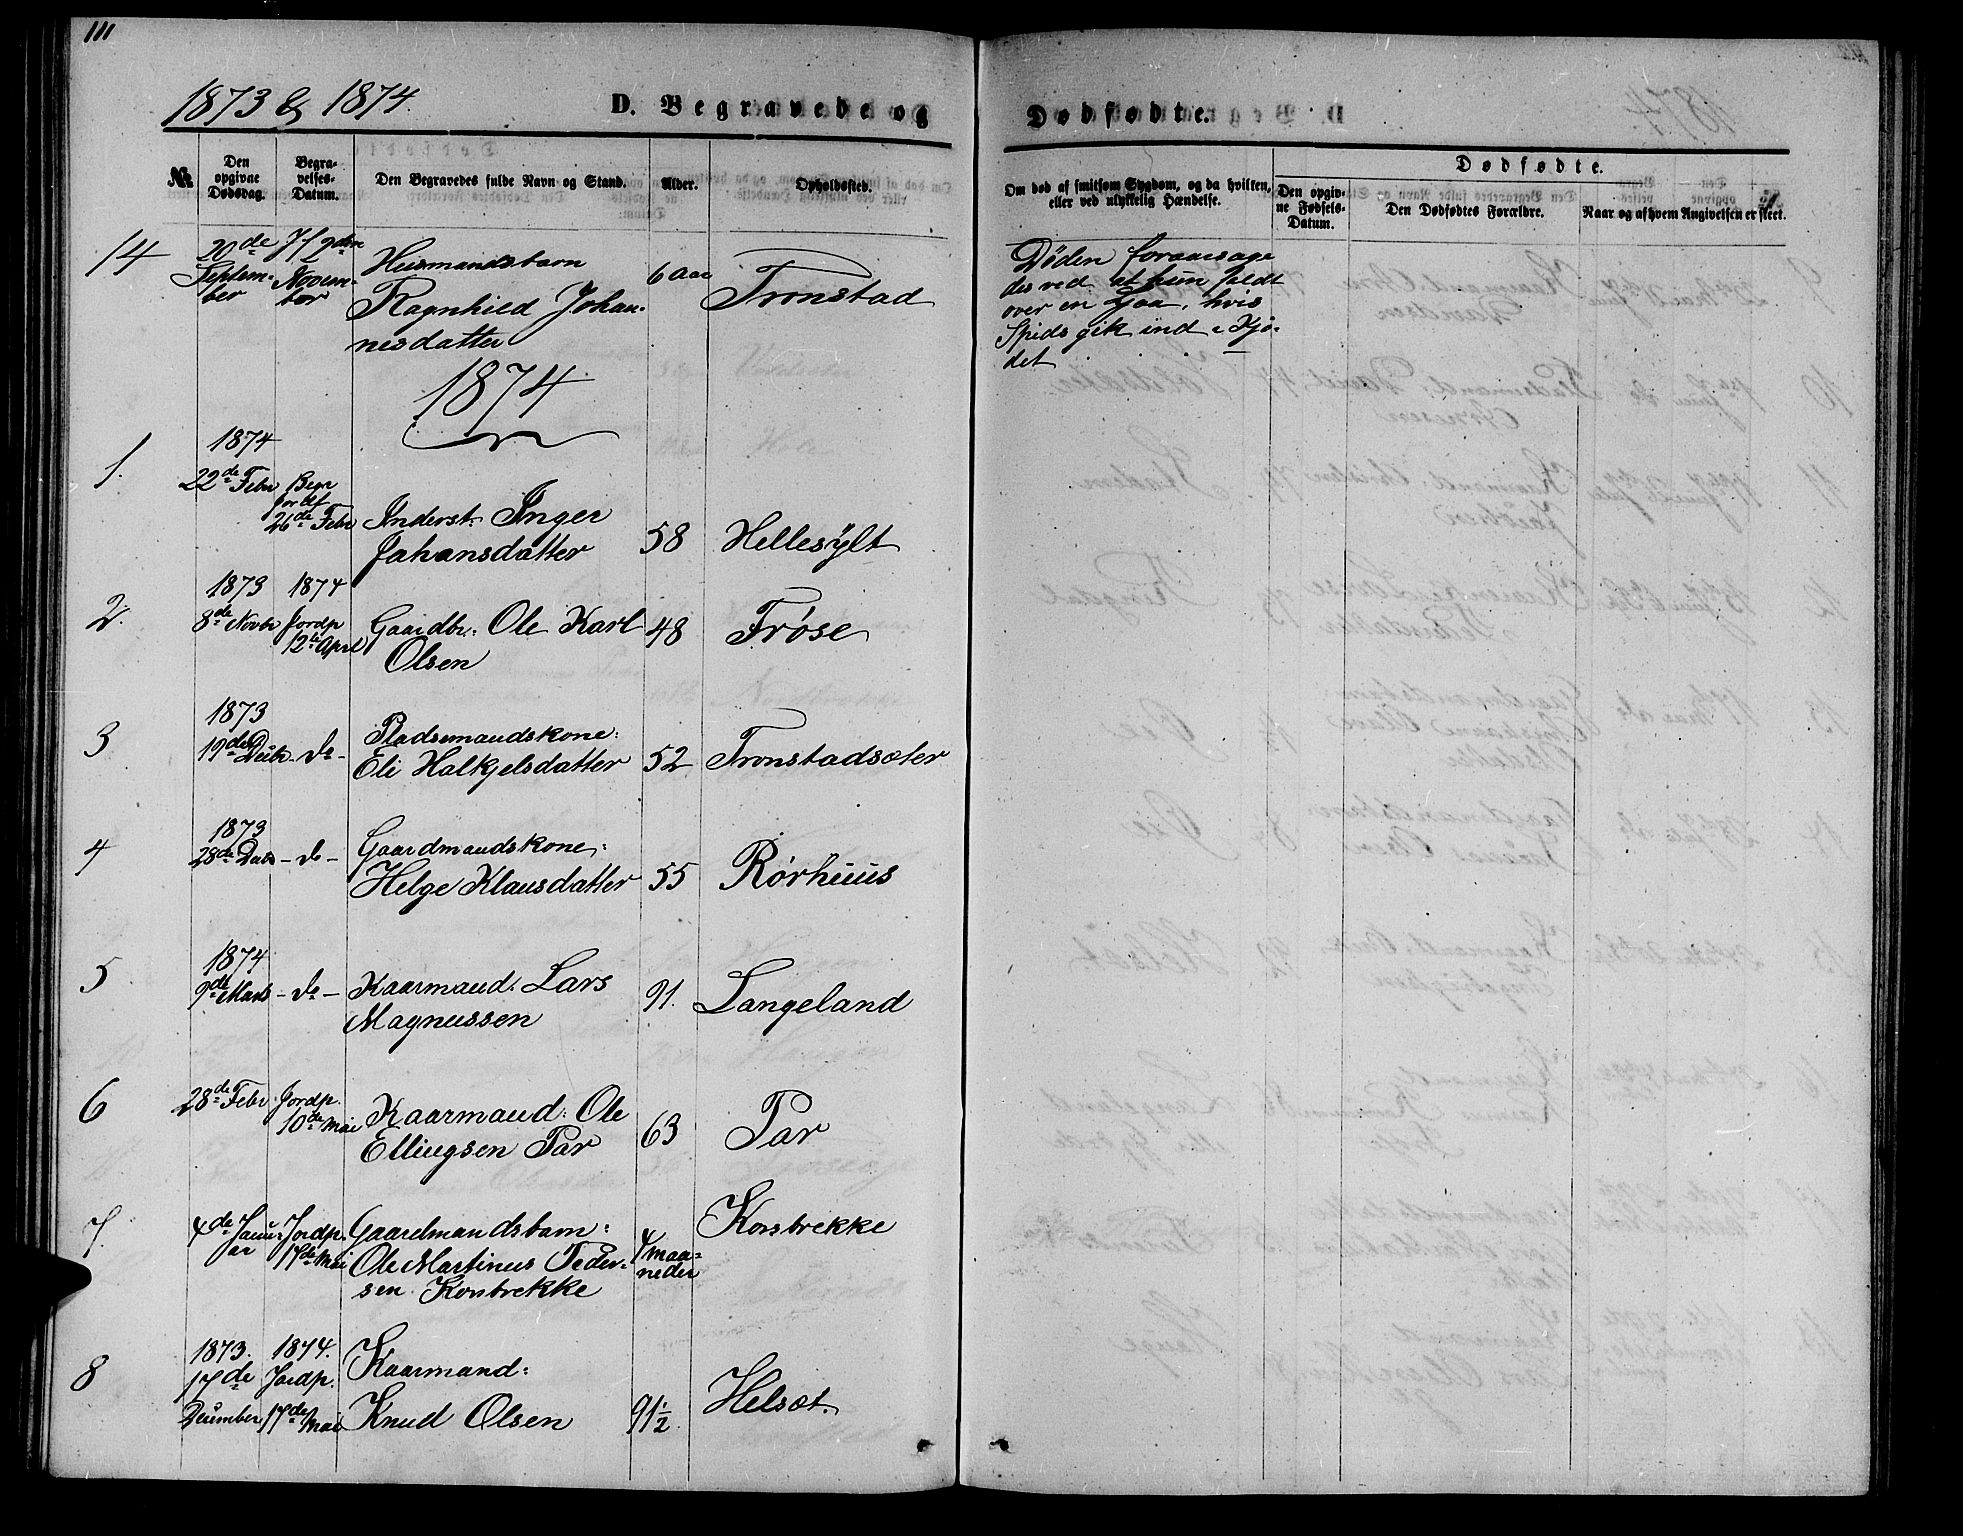 111
1873 & 1874.
D. Begravede og
Dødfødte.
№
Den opgivne Dødsdag.
Begravelses-Datum.
Den Begravedes fulde Navn og Stand.
Alder.
Opholdssted.
Om død af smitsom Sygdom, og da hvilken, eller ved ulykkelig Hændelse.
Dødfødte.
Den opgivne Fødsels-Datum.
Den Dødfødtes Forældre.
Naar og af hvem Angivelsen er skeet.
14
20de Septem-
ber
Jf 2den
Novem-
ber
Huusmandsbarn
Ragnhild Johan-
nesdatter
6 Aar
Tronstad
Døden foraarsage
des ved at hun faldt
over en Ljaa, hvis
Spids gik ind i Kjø-
det
1874
1.
1874
22de Febr
Begr
Jordf
26de Febr
Inderst: Inger
Johansdatter
58
Hellesylt
2.
1873
8de Novbr
1874
Jordp
12te April
Gaardbr: Ole Karl
Olsen
48
Frøse
3
1873
19de Decbr
- do -
Pladsmandskone:
Eli Halkjelsdatter
52
Tronstadsæter
4
1873
28de Decbr
- do -
Gaardmandskone:
Helge Klausdatter
55
Rørhuus
5
1874
9de Marts
- do -
Kaarmand: Lars
Magnussen
91.
Langeland
6
28de Febr
Jordp.
10de Mai
Kaarmand: Ole
Ellingsen Tar
63
Tar
7.
4de Janu-
ar
Jordp.
17de Mai
Gaardmandsbarn:
Ole Martinus Peder-
sen Korsbrekke
4 maa-
neder
Korsbrekke
8
1873.
17de
December
1874.
Jordp.
17de Mai
Kaarmand:
Knud Olsen
91½
Helsæt.